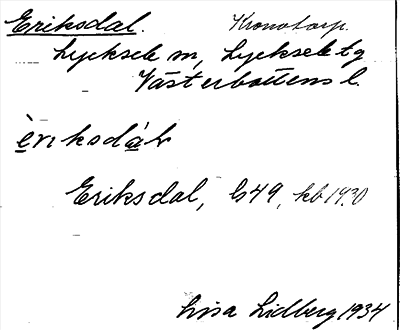 Eriksdal. Kronotorp.
Lycksele m, Lycksele tg
Västerbottens l.
èriksdál
Eriksdal, b49, kb 1930
Lisa Lidberg 1934